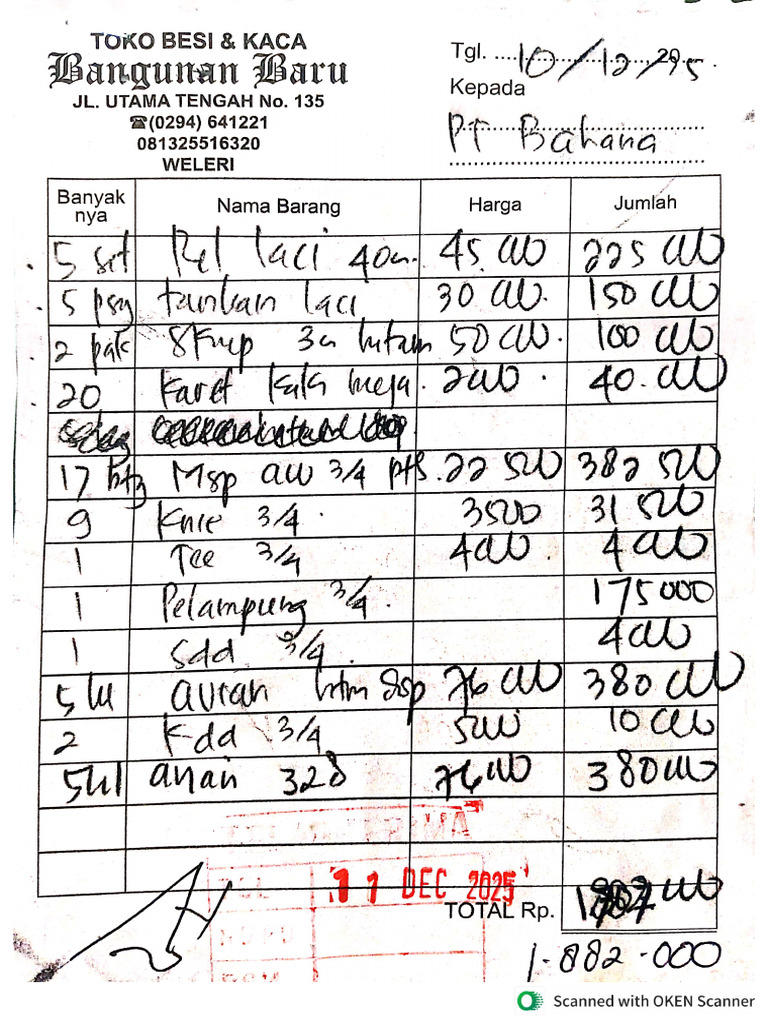 TOKO BESI & KACA
Bangunan Baru
JL. UTAMA TENGAH No. 135
☎(0294) 641221
081325516320
WELERI
Tgl. 10/12/25
Kepada
PT Bahana
Banyak nya Nama Barang Harga Jumlah
5 set Rel laci 40cm. 45.000 225 000
5 psg tarikan laci 30 000. 150 000
2 pak Skrup 3cm hitam 50 000. 100 000
20 karet kaki meja. 2000. 40.000
17 btg Msp aw 3/4 22 500 382 500
9 Knie 3/4. 3500 31 500
1 Tee 3/4 4000. 4000
1 Pelampung 3/4. 175000
1 sdd 3/4. 4000
5 76 000 380 000
2 kdd 3/4 5000 10 000
5 328 76000 380000
11 DEC 2025
TOTAL Rp.
1.882.000
Scanned with OKEN Scanner